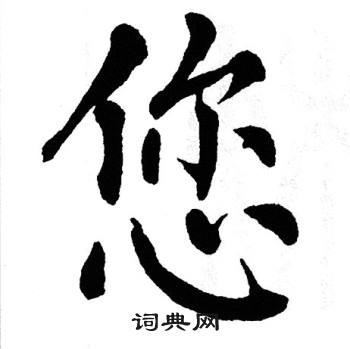 您
词典网